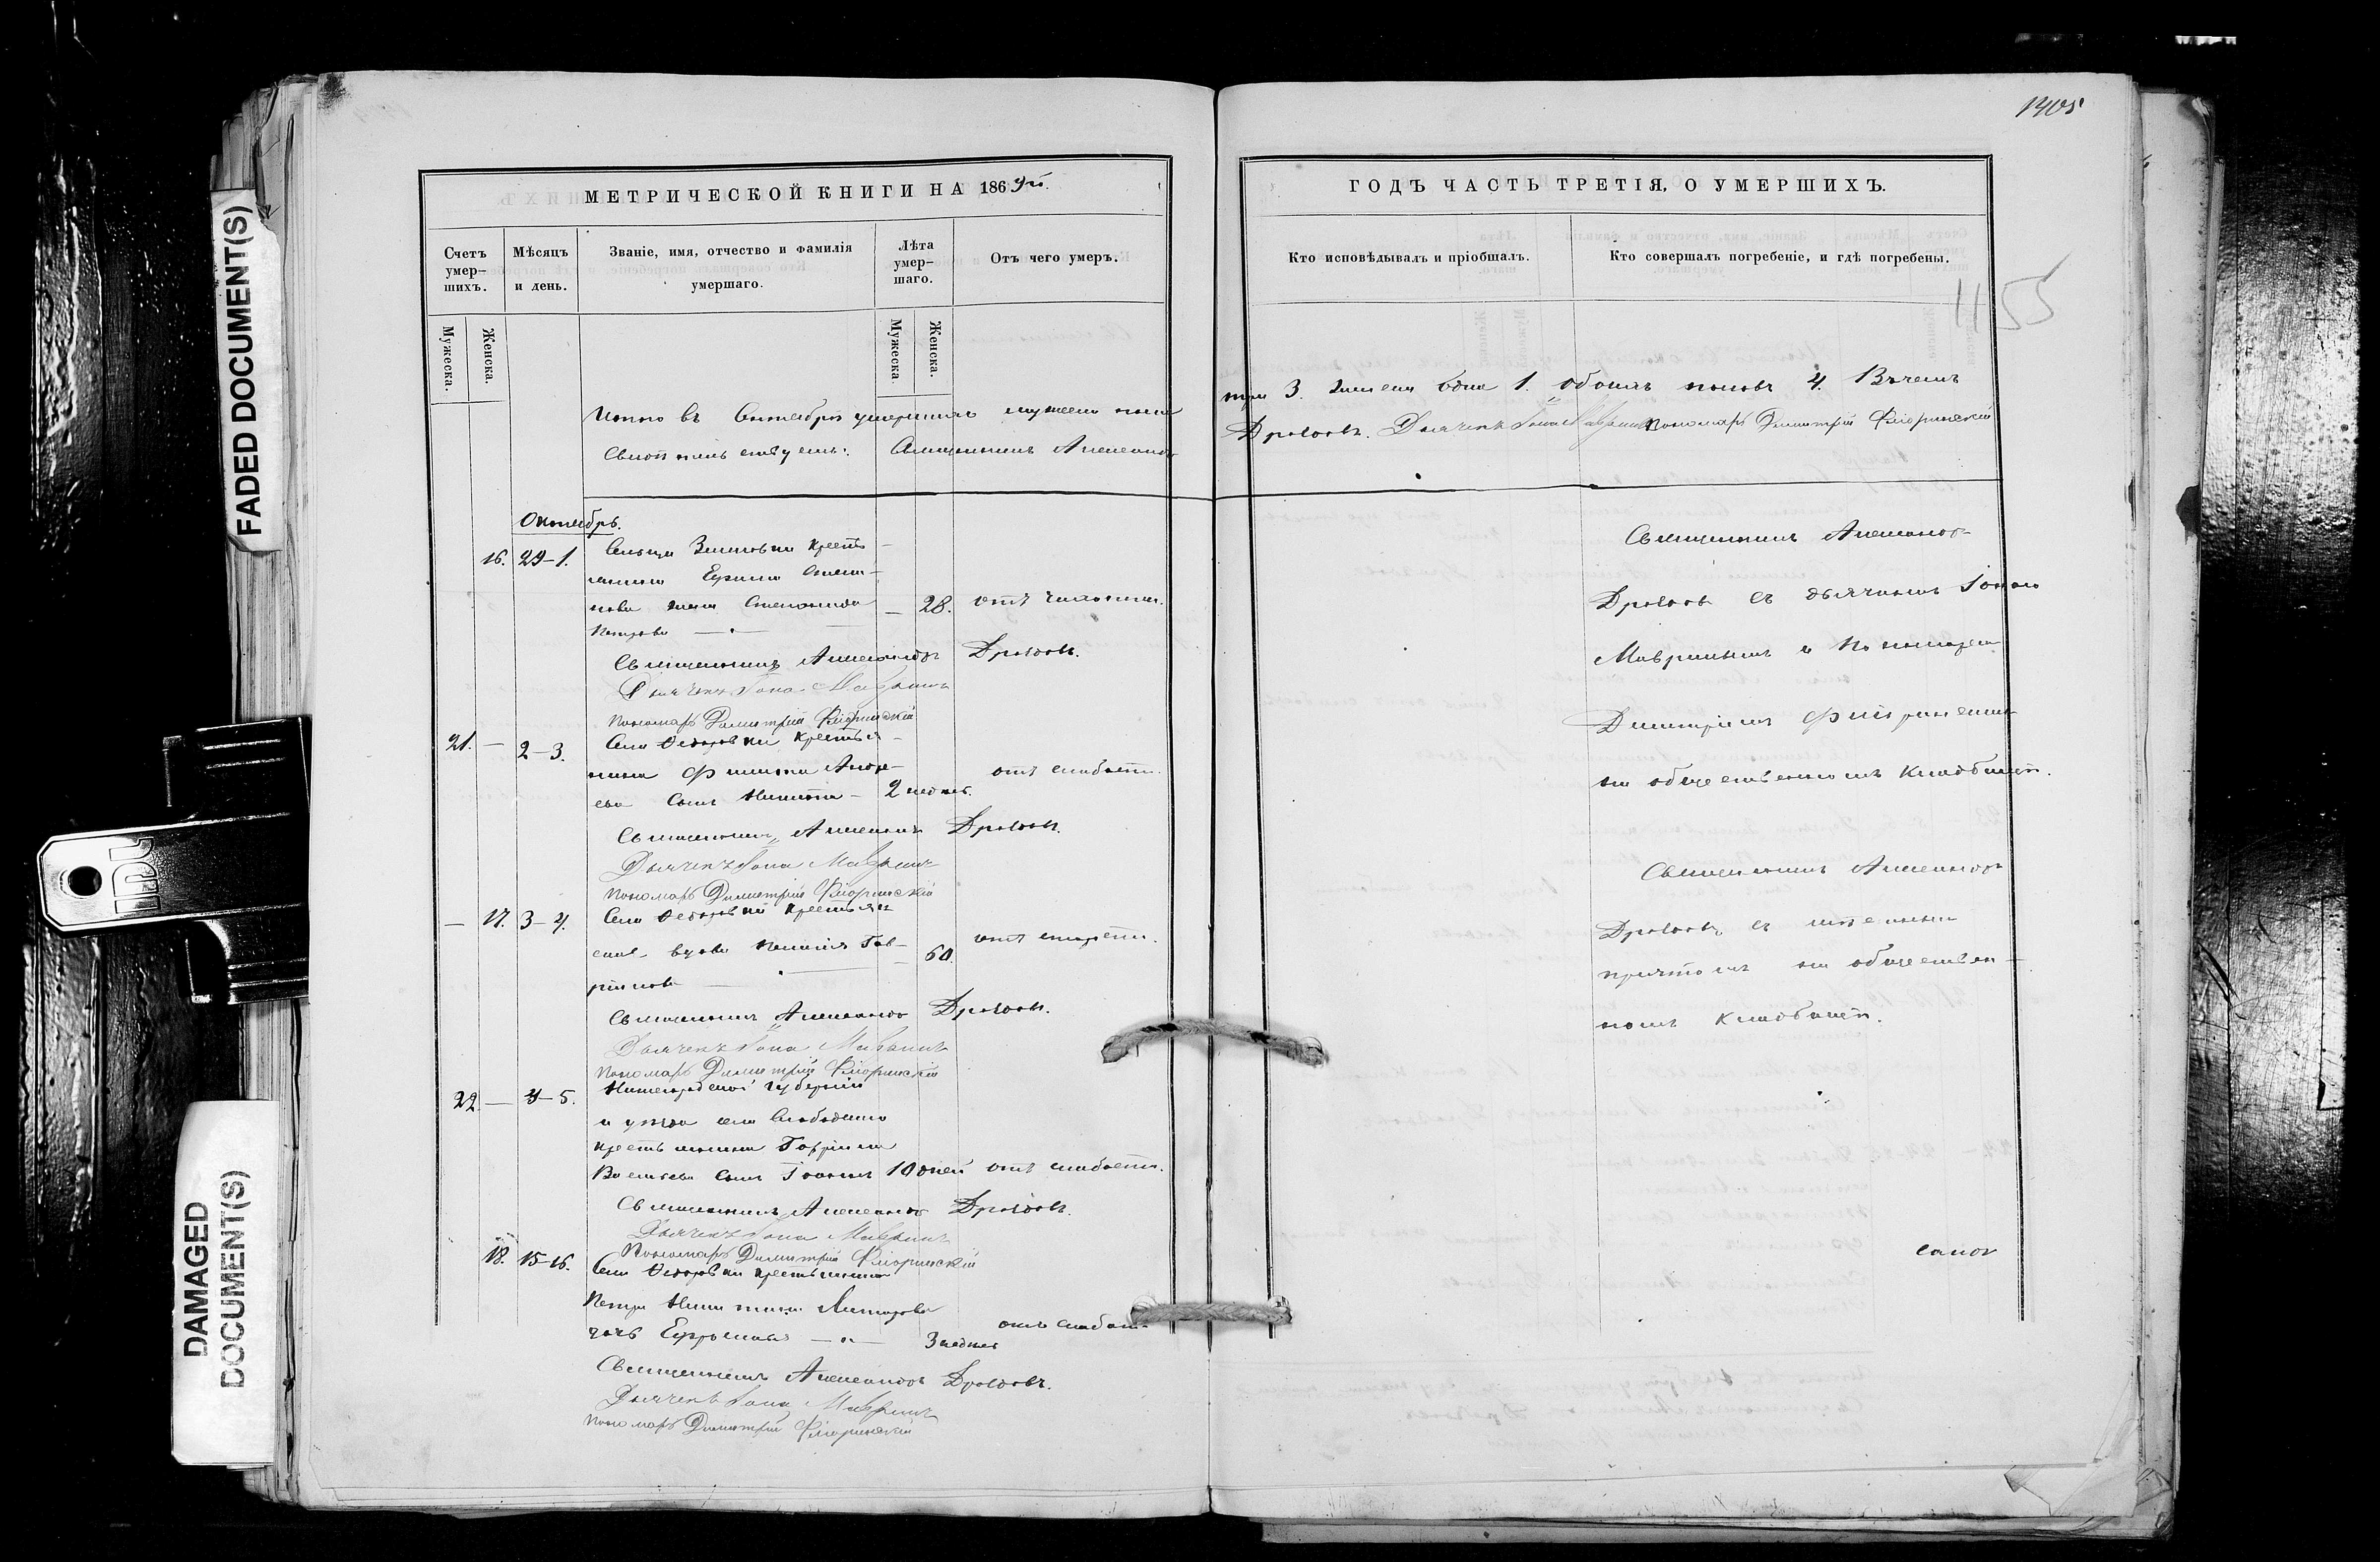 1405
1155
FADED DOCUMENT(S)
DAMAGED
DOCUMENT(S)
МЕТРИЧЕСКОЙ КНИГИ НА 1869й.
Счетъ умер-шихъ.
Мѣсяцъ и день.
Званіе, имя, отчество и фамилія умершаго.
Лѣта умер-шаго.
Отъ чего умеръ.
Мужеска.
Женска.
Мужеска.
Женска.
Итого въ Сентябрѣ умершихъ мужеска пола
Священникъ Александръ
Октябрь.
16. 29-1. Сельца крестья-
нова жена Степанида — 28. отъ чахотки.
Петрова
Священникъ Александръ Дроздовъ.
Дьячекъ Іона Мавринъ
Пономарь Димитрій Флоринскій
21. — 2-3. Села Федоровки крестья-
нина Филиппа Андре-
ева сынъ Никита — 2 недѣл. отъ слабости.
Священникъ Александръ Дроздовъ.
Дьячекъ Іона Мавринъ
Пономарь Димитрій Флоринскій
— 17. 3-4. Села Федоровки крестьян
ская вдова Гав- 60. отъ старости.
рилова
Священникъ Александръ Дроздовъ.
Дьячекъ Іона Мавринъ
Пономарь Димитрій Флоринскій
22. — 4-5. Нижегородской губерніи
и уѣзда села
крестьянина Гавріила
Васильева сынъ Іоаннъ 10 дней отъ слабости.
Священникъ Александръ Дроздовъ.
Дьячекъ Іона Мавринъ
Пономарь Димитрій Флоринскій
18. 15-16. Села Федоровки крестьянина
Петра Никитина
дочь 3 недѣл отъ слабост-
Священникъ Александръ Дроздовъ.
Дьячекъ Іона Мавринъ
Пономарь Димитрій Флоринскій
ГОДЪ ЧАСТЬ ТРЕТІЯ, О УМЕРШИХЪ.
Кто исповѣдывалъ и пріобщалъ.
Кто совершалъ погребеніе, и гдѣ погребены.
три 3. женска одна 1. обоихъ половъ 4. Въ чемъ
Дроздовъ. Дьячекъ Іона Мавринъ Пономарь Димитрій Флоринскій
Священникъ Александръ
Дроздовъ съ дьячкомъ Іоною
Мавринымъ и пономаремъ
Димитріемъ Флоринскимъ
на общественномъ кладбищѣ.
Священникъ Александръ
Дроздовъ съ тѣмъ же
причтомъ на обществен-
номъ кладбищѣ.